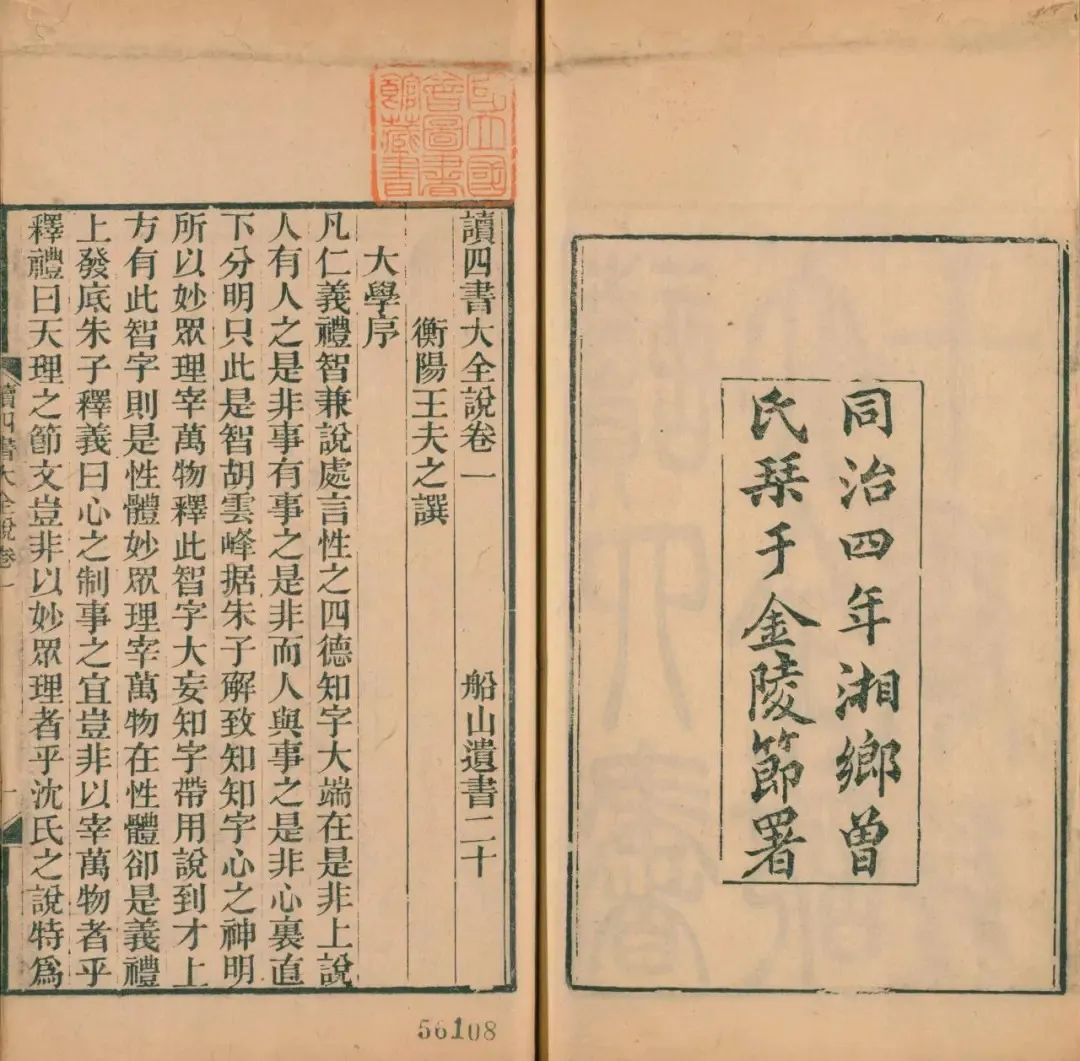 同治四年湘鄉曾
氏栞于金陵節署
國立國
會圖書
館藏書
讀四書大全說卷一 船山遺書二十
衡陽王夫之譔
大學序
凡仁義禮智兼說處言性之四德知字大端在是非上說
人有人之是非事有事之是非而人與事之是非心裏直
下分明只此是智胡雲峰据朱子解致知知字心之神明
所以妙眾理宰萬物釋此智字大妄知字帶用說到才上
方有此智字則是性體妙眾理宰萬物在性體卻是義禮
上發底朱子釋義曰心之制事之宜豈非以宰萬物者乎
釋禮曰天理之節文豈非以妙眾理者乎沈氏之說特爲
讀四書大全說卷一
一
56108